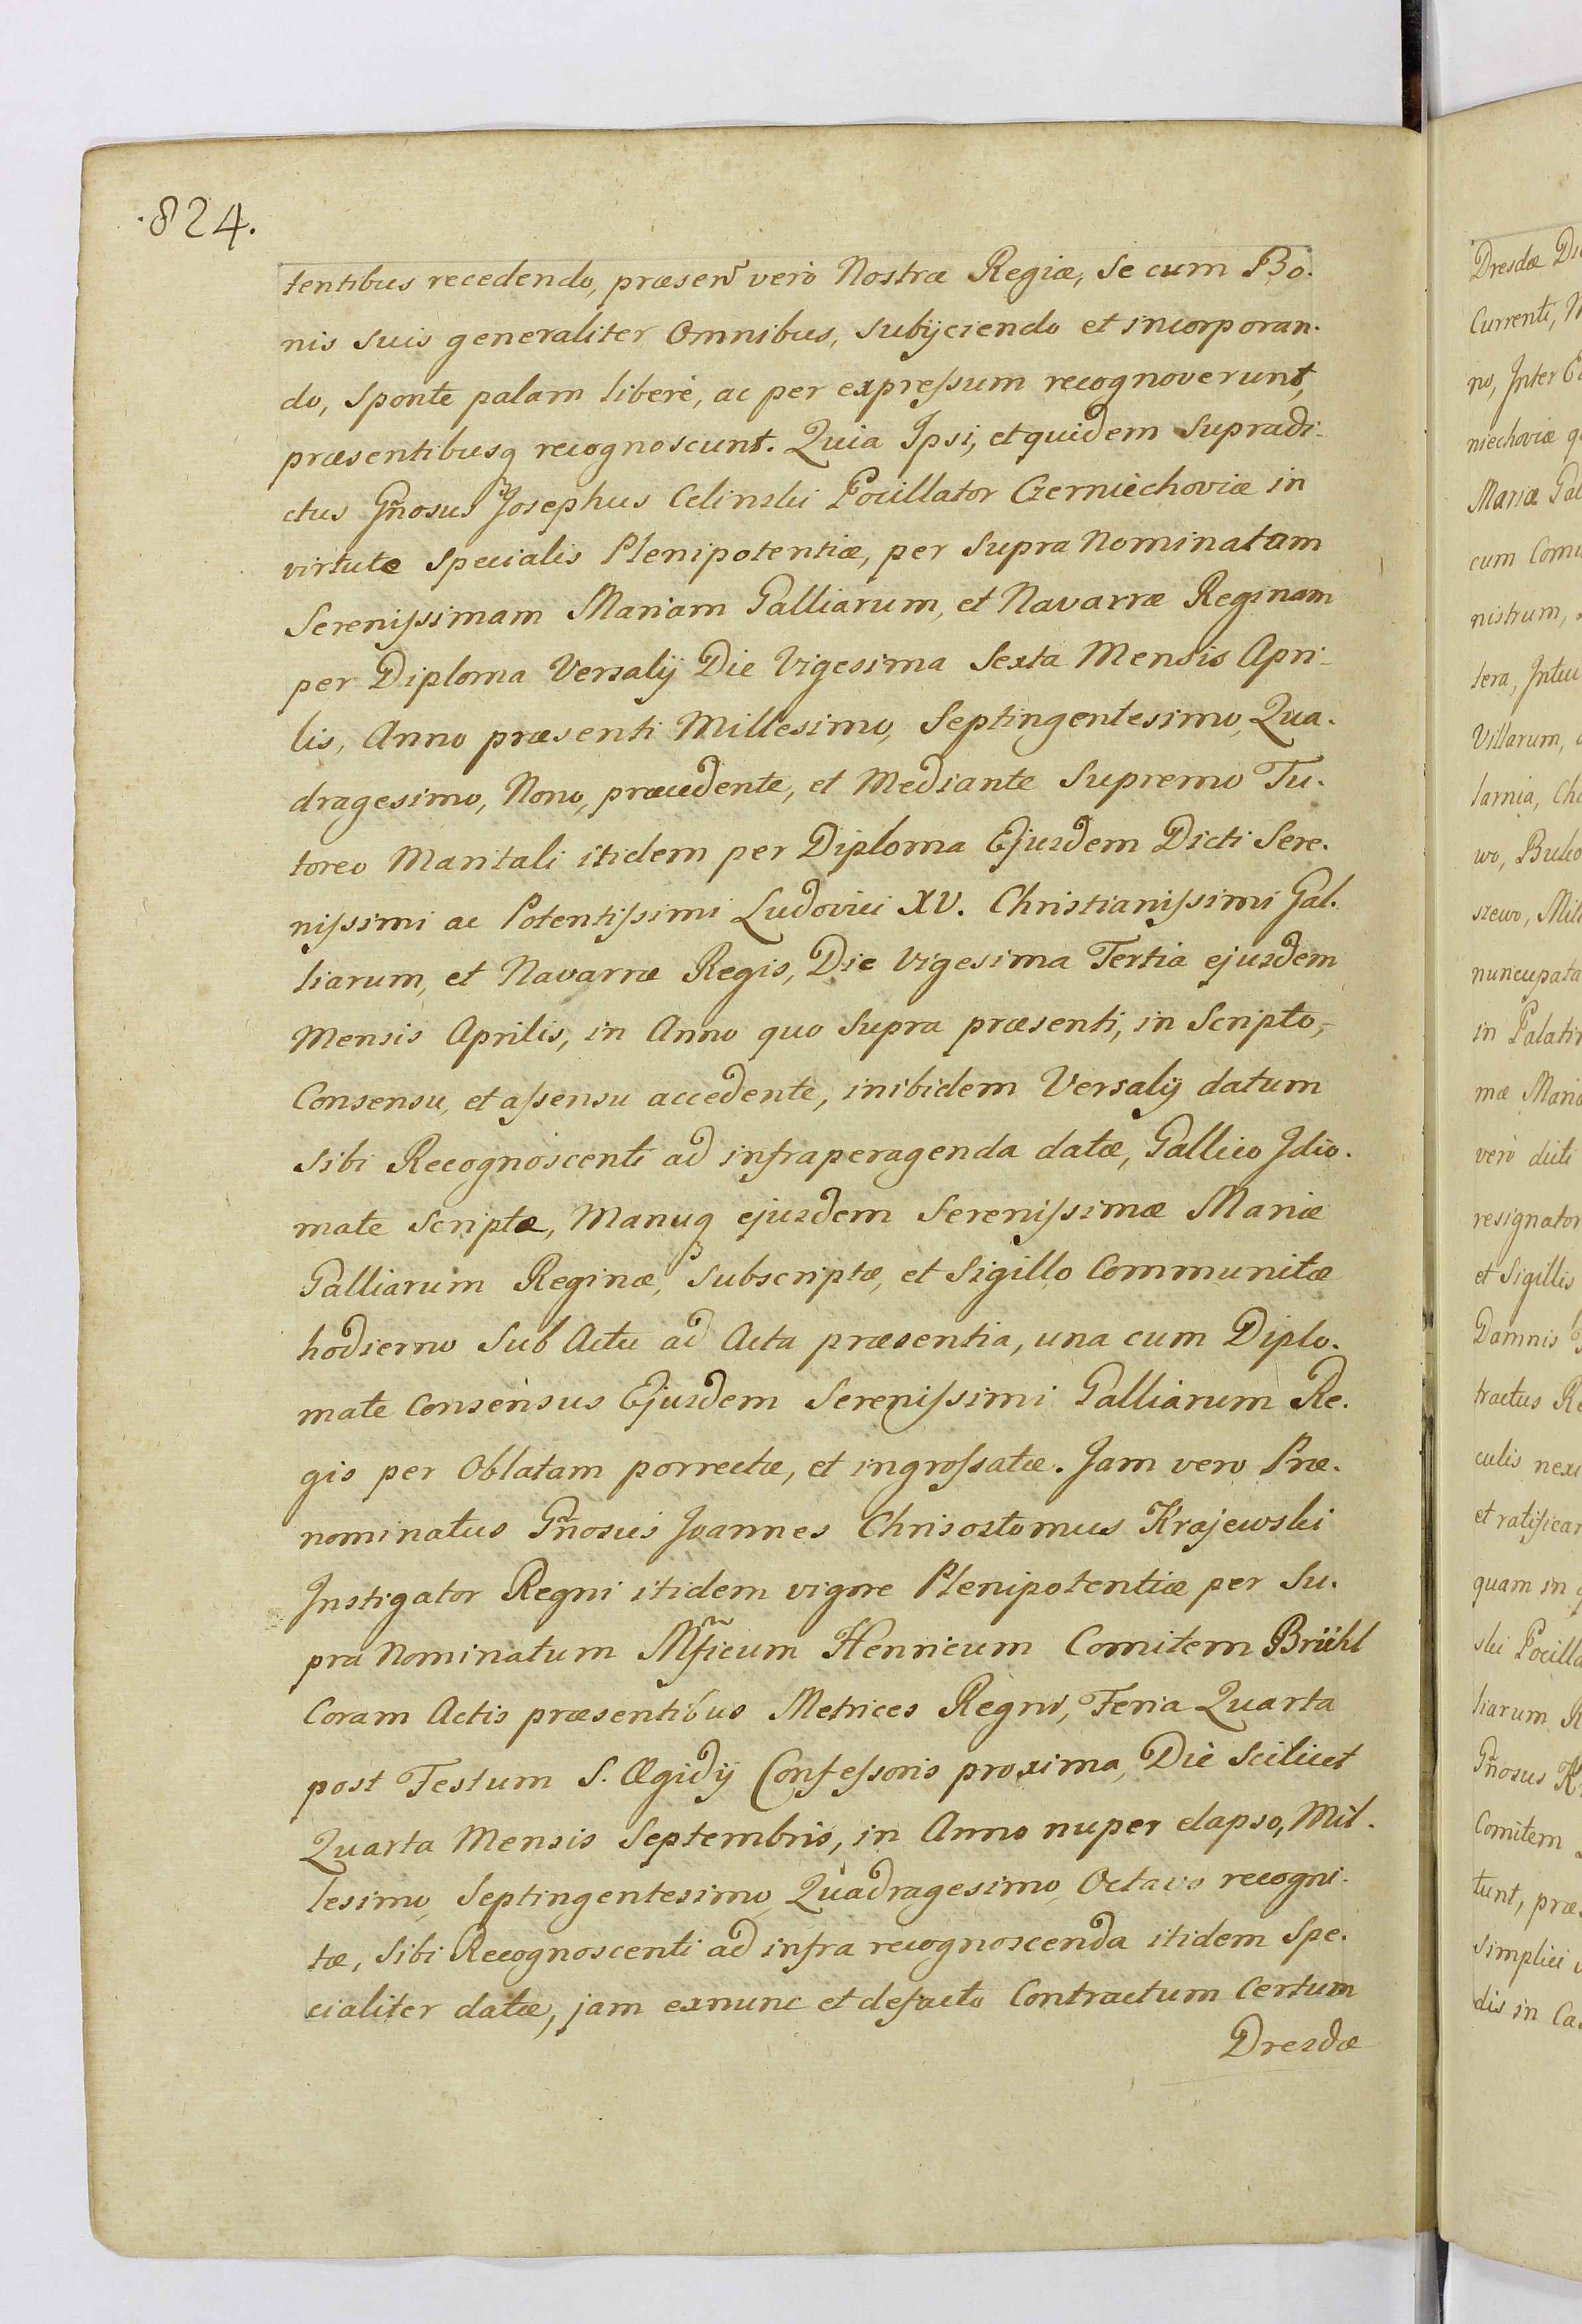 ·824.
tentibus recedendo, præsen͠ verò Nostræ Regiæ, Se cum Bo.
nis suis generaliter Omnibus, subijciendo et incorporan.
do, Sponte palam liberè, ac per expreſsum recognoverunt,
præsentibusq recognoscunt. Quia Ipsi, et quidem Supradi-
ctus Gñosus Josephus Celinski Pocillator Czerniechoviæ in
virtute Specialis Plenipotentiæ, per Supra Nominatam
Sereniſsimam Mariam Galliarum, et Navarræ Reginam
per Diploma Versalij Die Vigesima Sexta Mensis Apri-
lis, Anno præsenti Millesimo, Septingentesimo, Qua.
dragesimo, Nono, præcedente, et Mediante Supremo Tu.
toreo Maritali itidem per Diploma Ejusdem Dicti Sere.
niſsimi ac Potentiſsimi Ludovici XV. Christianiſsimi Gal.
liarum, et Navarræ Regis, Die Vigesima Tertia ejusdem
Mensis Aprilis, in Anno quo Supra præsenti, in Scripto,-
Consensu, et aſsensu accedente, inibidem Versalij datum
Sibi Recognoscenti ad infraperagenda datæ, Gallico Idio.
mate Scriptæ, Manuq ejusdem Sereniſsimæ Mariæ
Galliarum Reginæ, Subscriptæ, et Sigillo Communitæ
hodierno Sub Actu ad Acta præsentia, una cum Diplo.
mate Consensus Ejusdem Sereniſsimi Galliarum Re.
gis per Oblatam porrectæ, et ingroſsatæ. Jam vero Præ.
nominatus Gñosus Joannes Chrisostomus Krajewski
Instigator Regni itidem vigore Plenipotentiæ per Su.
pra Nominatum Mf͠icum Henricum Comitem Brühl
Coram Actis præsentibus Metrices Regni, Feria Quarta
post Festum S. Ægidij Confeſsoris proxima, Die Scilicet
Quarta Mensis Septembris, in Anno nuper elapso, Mil.
lesimo, Septingentesimo, Quadragesimo, Octavo recogni-
tæ, Sibi Recognoscenti ad infra recognoscenda itidem Spe.
cialiter datæ, jam exnunc et defacto Contractum Certum
Dresdæ
Dresdæ
Currenti,
no, Inter
niechoviæ
Mariæ
cum
nistrum,
tera,
Villarum,
larnia,
wo,
szewo,
nuncupata
in
mæ
verò dicti
resignator
et Sigillis
Damnis
tractus
culis
et ratificar
quam in
ski
liarum
Gñosus
Comitem
tunt,
Simplici
dis in